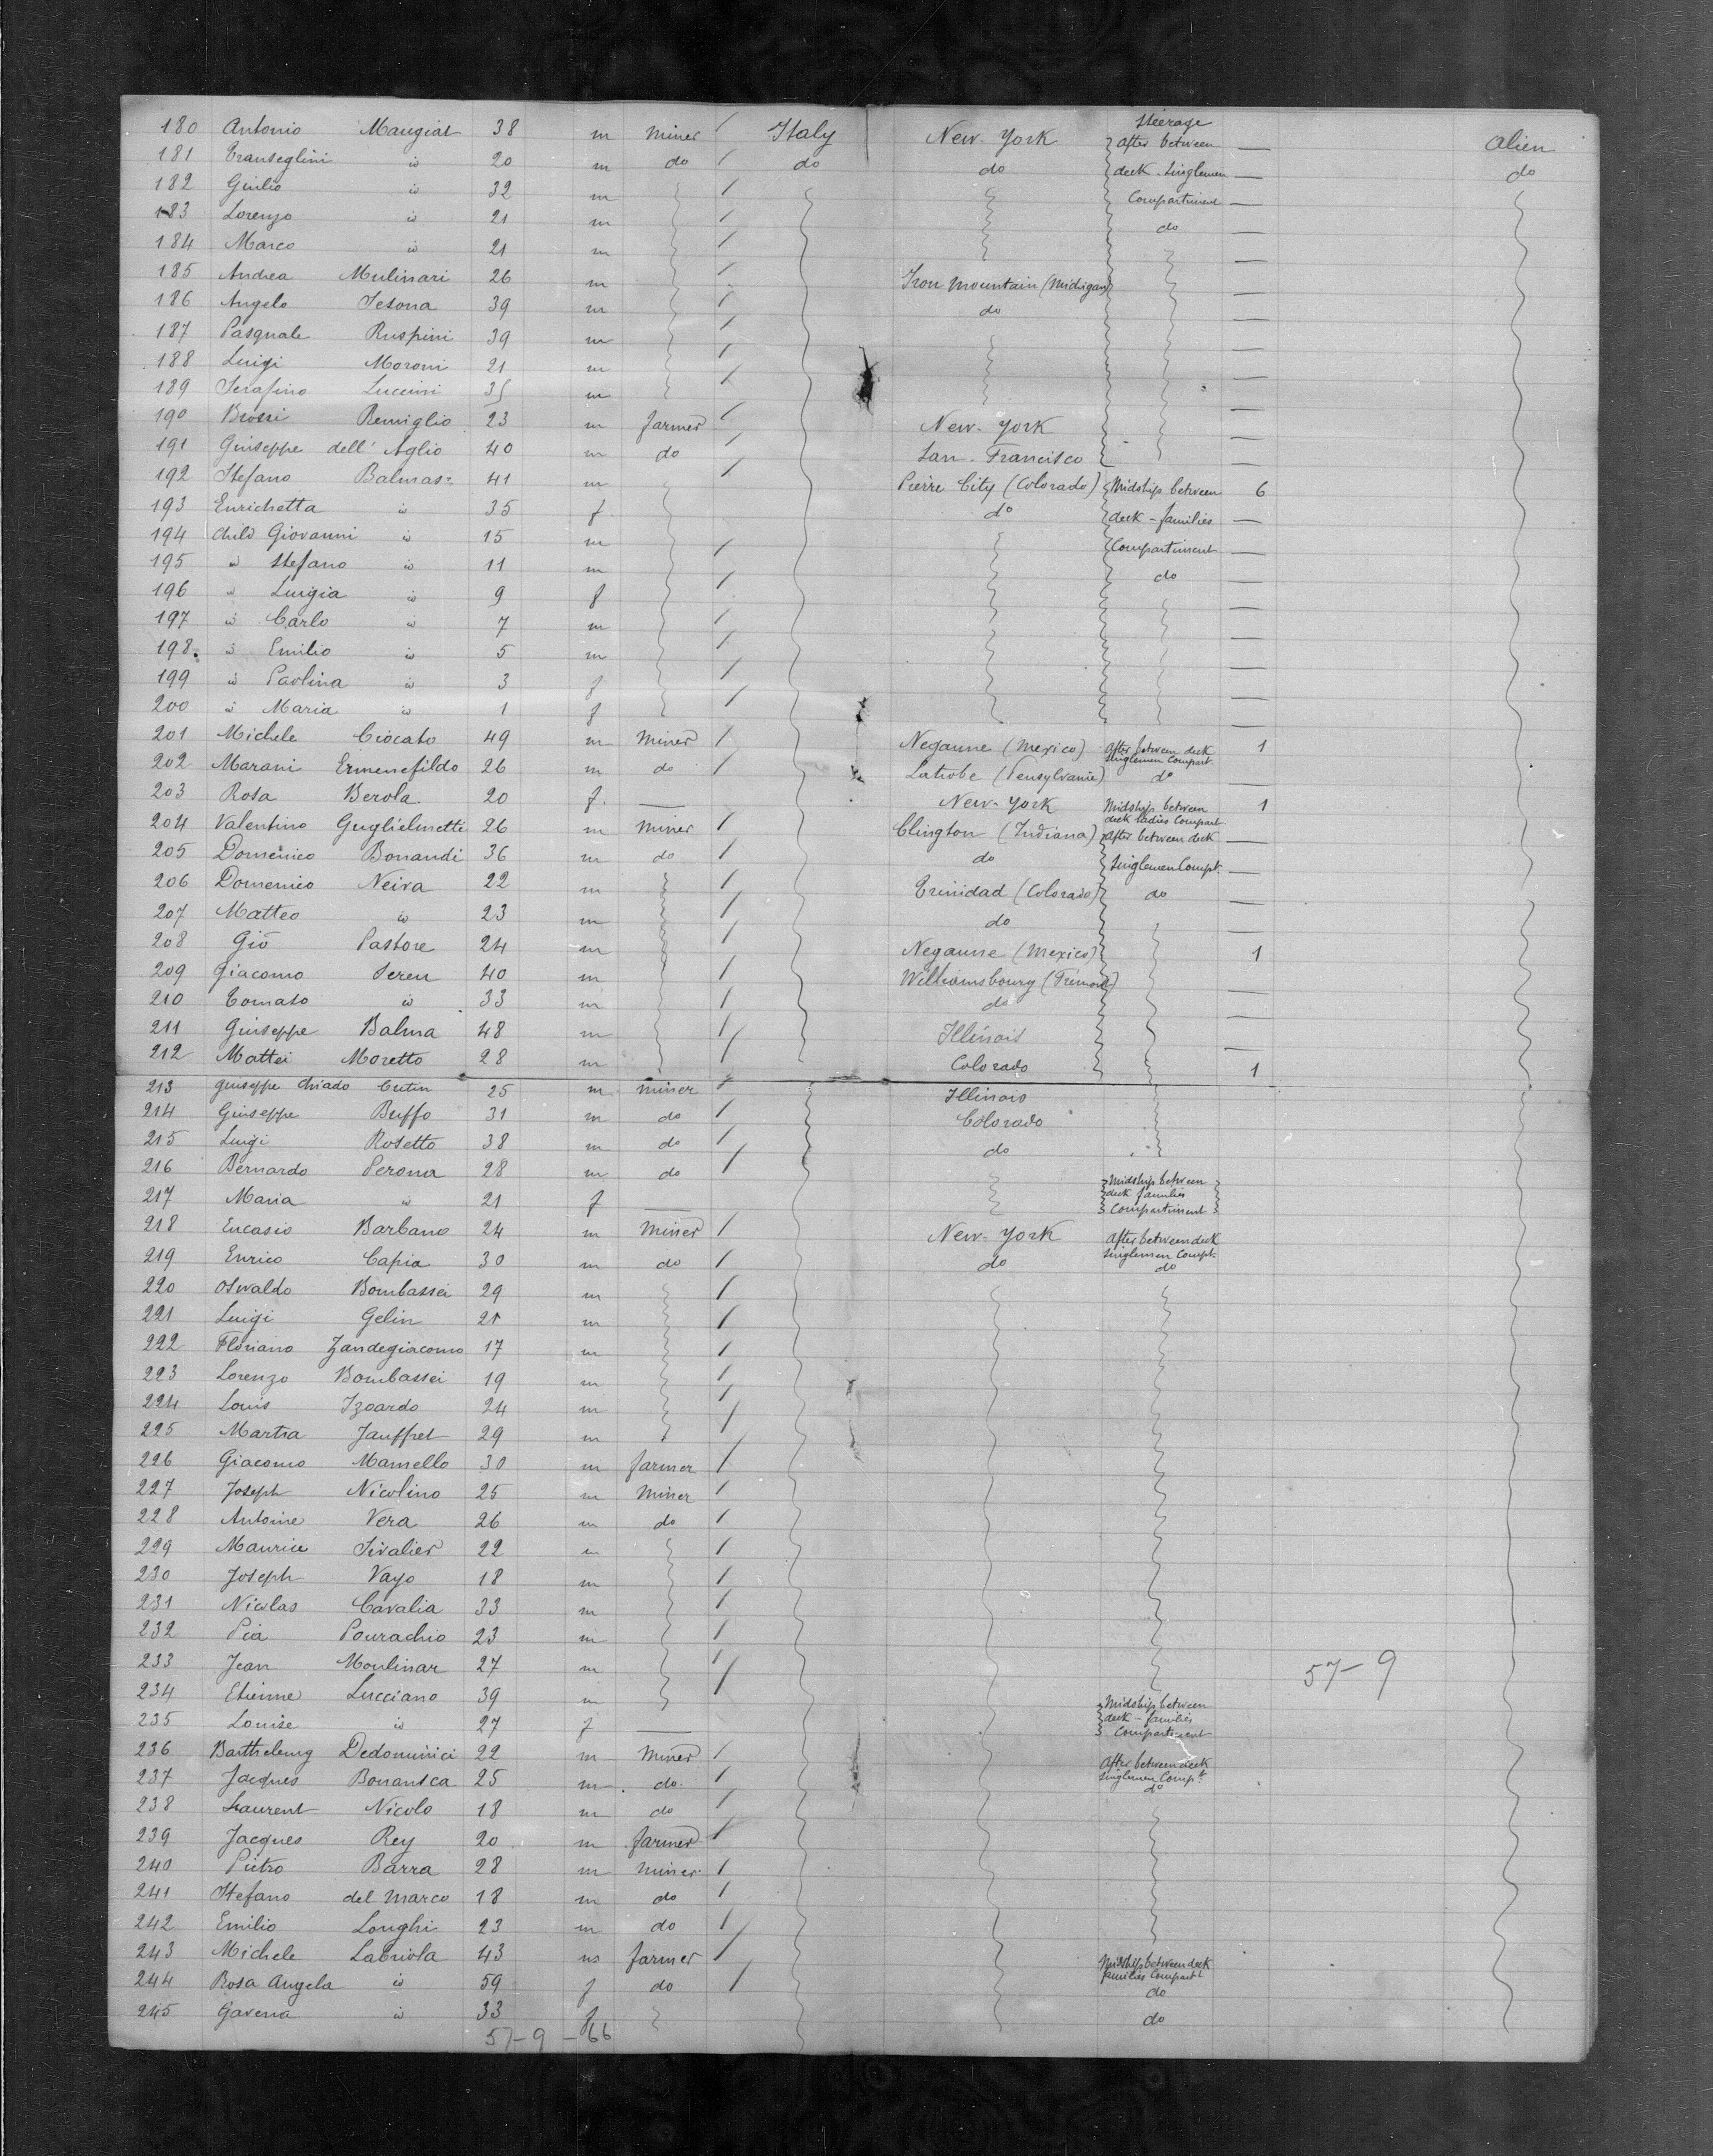 Steerage
180 Antonio Maugiat 38 m miner / Italy New-York after between — alien
181 Transeglini id 20 m do / do do deck Singlemen — do
182 Giulio id 32 m / Compartiment —
183 Lorenzo id 21 m / do —
184 Marco id 21 m / —
185 Andrea Mulinari 26 m / Iron Mountain (Michigan) —
186 Angelo Tesona 39 m / do —
187 Pasquale Ruspini 39 m / —
188 Luigi Moroni 21 m / —
189 Serafino Luccini 35 m / —
190 Brossi Remiglio 23 m farmer / New-York —
191 Giuseppe dell'Aglio 40 m do / San-Francisco —
192 Stefano Balmas 41 m / Pierre City (Colorado) Midship between 6
193 Enrichetta id 35 f do deck-families —
194 child Giovanni id 15 m / Compartiment —
195 id Stefano id 11 m / do —
196 id Luigia id 9 f / —
197 id Carlo id 7 m / —
198. id Emilio id 5 m / —
199 id Paolina id 3 f / —
200 id Maria id 1 f / —
201 Michele Ciocato 49 m miner / Negaune (Mexico) After between deck Singlemen Compart. 1
202 Marani Ermenefildo 26 m do / Latrobe (Pensylvanie) do —
203 Rosa Berola 20 f. — New-York Midship between deck ladies Compart 1
204 Valentino Guglielmetti 26 m miner / Clington (Indiana) after between deck —
205 Domenico Bonandi 36 m do / do Singlemen Compt. —
206 Domenico Neira 22 m / Trinidad (Colorado) do —
207 Matteo id 23 m / do —
208 Gio Pastore 24 m / Negaune (Mexico) 1
209 Giacomo Seren 40 m / Williamsbourg —
210 Tomaso id 33 m / do —
211 Giuseppe Balma 48 m / Illinois —
212 Mattei Moretto 28 m / Colorado 1
213 Giuseppe Chiado Cutin 25 m miner / Illinois
214 Giuseppe Buffo 31 m do / Colorado
215 Luigi Rosetto 38 m do / do
216 Bernardo Perona 28 m do / Midship between
217 Maria id 21 f — deck families Compartiment
218 Eucasio Barbano 24 m miner / New-York After between deck
219 Enrico Capia 30 m do / do Singlemen Compt. do
220 Oswaldo Bombassei 29 m /
221 Luigi Gelin 21 m /
222 Floriano Zandegiacomo 17 m /
223 Lorenzo Bombassei 19 m /
224 Louis Izoardo 24 m /
225 Martia Jauffret 29 m /
226 Giacomo Mamello 30 m farmer /
227 Joseph Nicolino 25 m miner /
228 Antoine Vera 26 m do /
229 Maurice Sivalier 22 m /
230 Joseph Vayo 18 m /
231 Nicolas Cavalia 33 m /
232 Pia Pourachio 23 m /
233 Jean Moulinar 27 m / 57-9
234 Etienne Lucciano 39 m / Midship between
235 Louise id 27 f — deck-families Compartiment
236 Barthelemy Dedominici 22 m miner / After between deck
237 Jacques Bonansca 25 m do. / Singlemen Compt. do
238 Laurent Nicolo 18 m do /
239 Jacques Rey 20 m farmer /
240 Pietro Barra 28 m miner /
241 Stefano del Marco 18 m do /
242 Emilio Longhi 23 m do /
243 Michele Labriola 43 m farmer / Midship between deck families Compart
244 Rosa Angela id 59 f do / do
245 Gavena id 33 f do
57-9-66